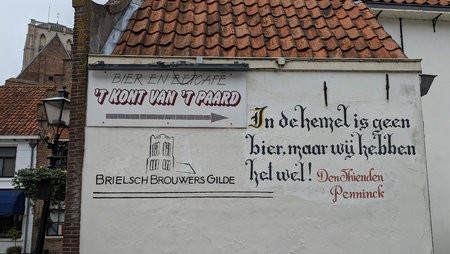 BIER EN EETCAFÉ
'T KONT VAN 'T PAARD
BRIELSCH BROUWERS GILDE
In de hemel is geen
bier, maar wij hebben
het wèl! Den Thienden
Penninck